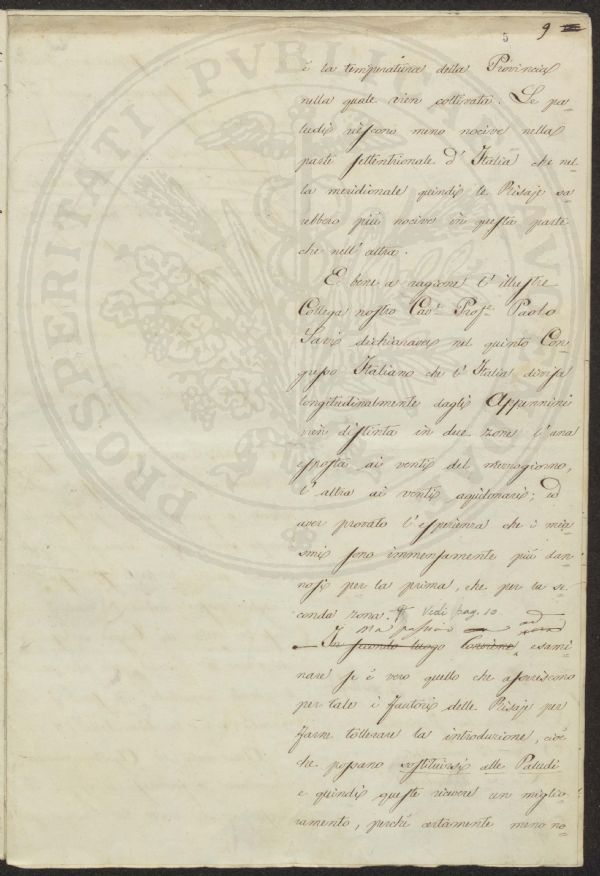 5 9
è la temperatura della Provincia
nella quale vien coltivata. Le pa-
ludi riescono meno nocive nella
parte settentrionale d'Italia che nel-
la meridionale quindi le Risaje sa-
rebbero più nocive in questa parte
che nell'altra.
E bene a ragione l'illustre
Collega nostro Cav.r Prof.r Paolo
Savi dichiarava nel quinto Con-
gresso Italiano che l'Italia divisa
longitudinalmente dagli Appennini
vien distinta in due zone l'una
esposta ai venti del mezzogiorno,
l'altra ai venti aquilonari; ed
aver provato l'esperienza che i mia-
smi sono immensamente più dan-
nosi per la prima, che per la se-
conda zona. Vedi pag. 10
Ma passiamo ad
In secondo luogo Conviene esami-
nare se è vero quello che asseriscono
per tale i fautori delle Risaje per
farne tollerare la introduzione, cioè
che possano sostituirsi alle Paludi
e quindi queste ricevere un miglio-
ramento, perché certamente meno no-
PROSPERITATI PVBLICAE